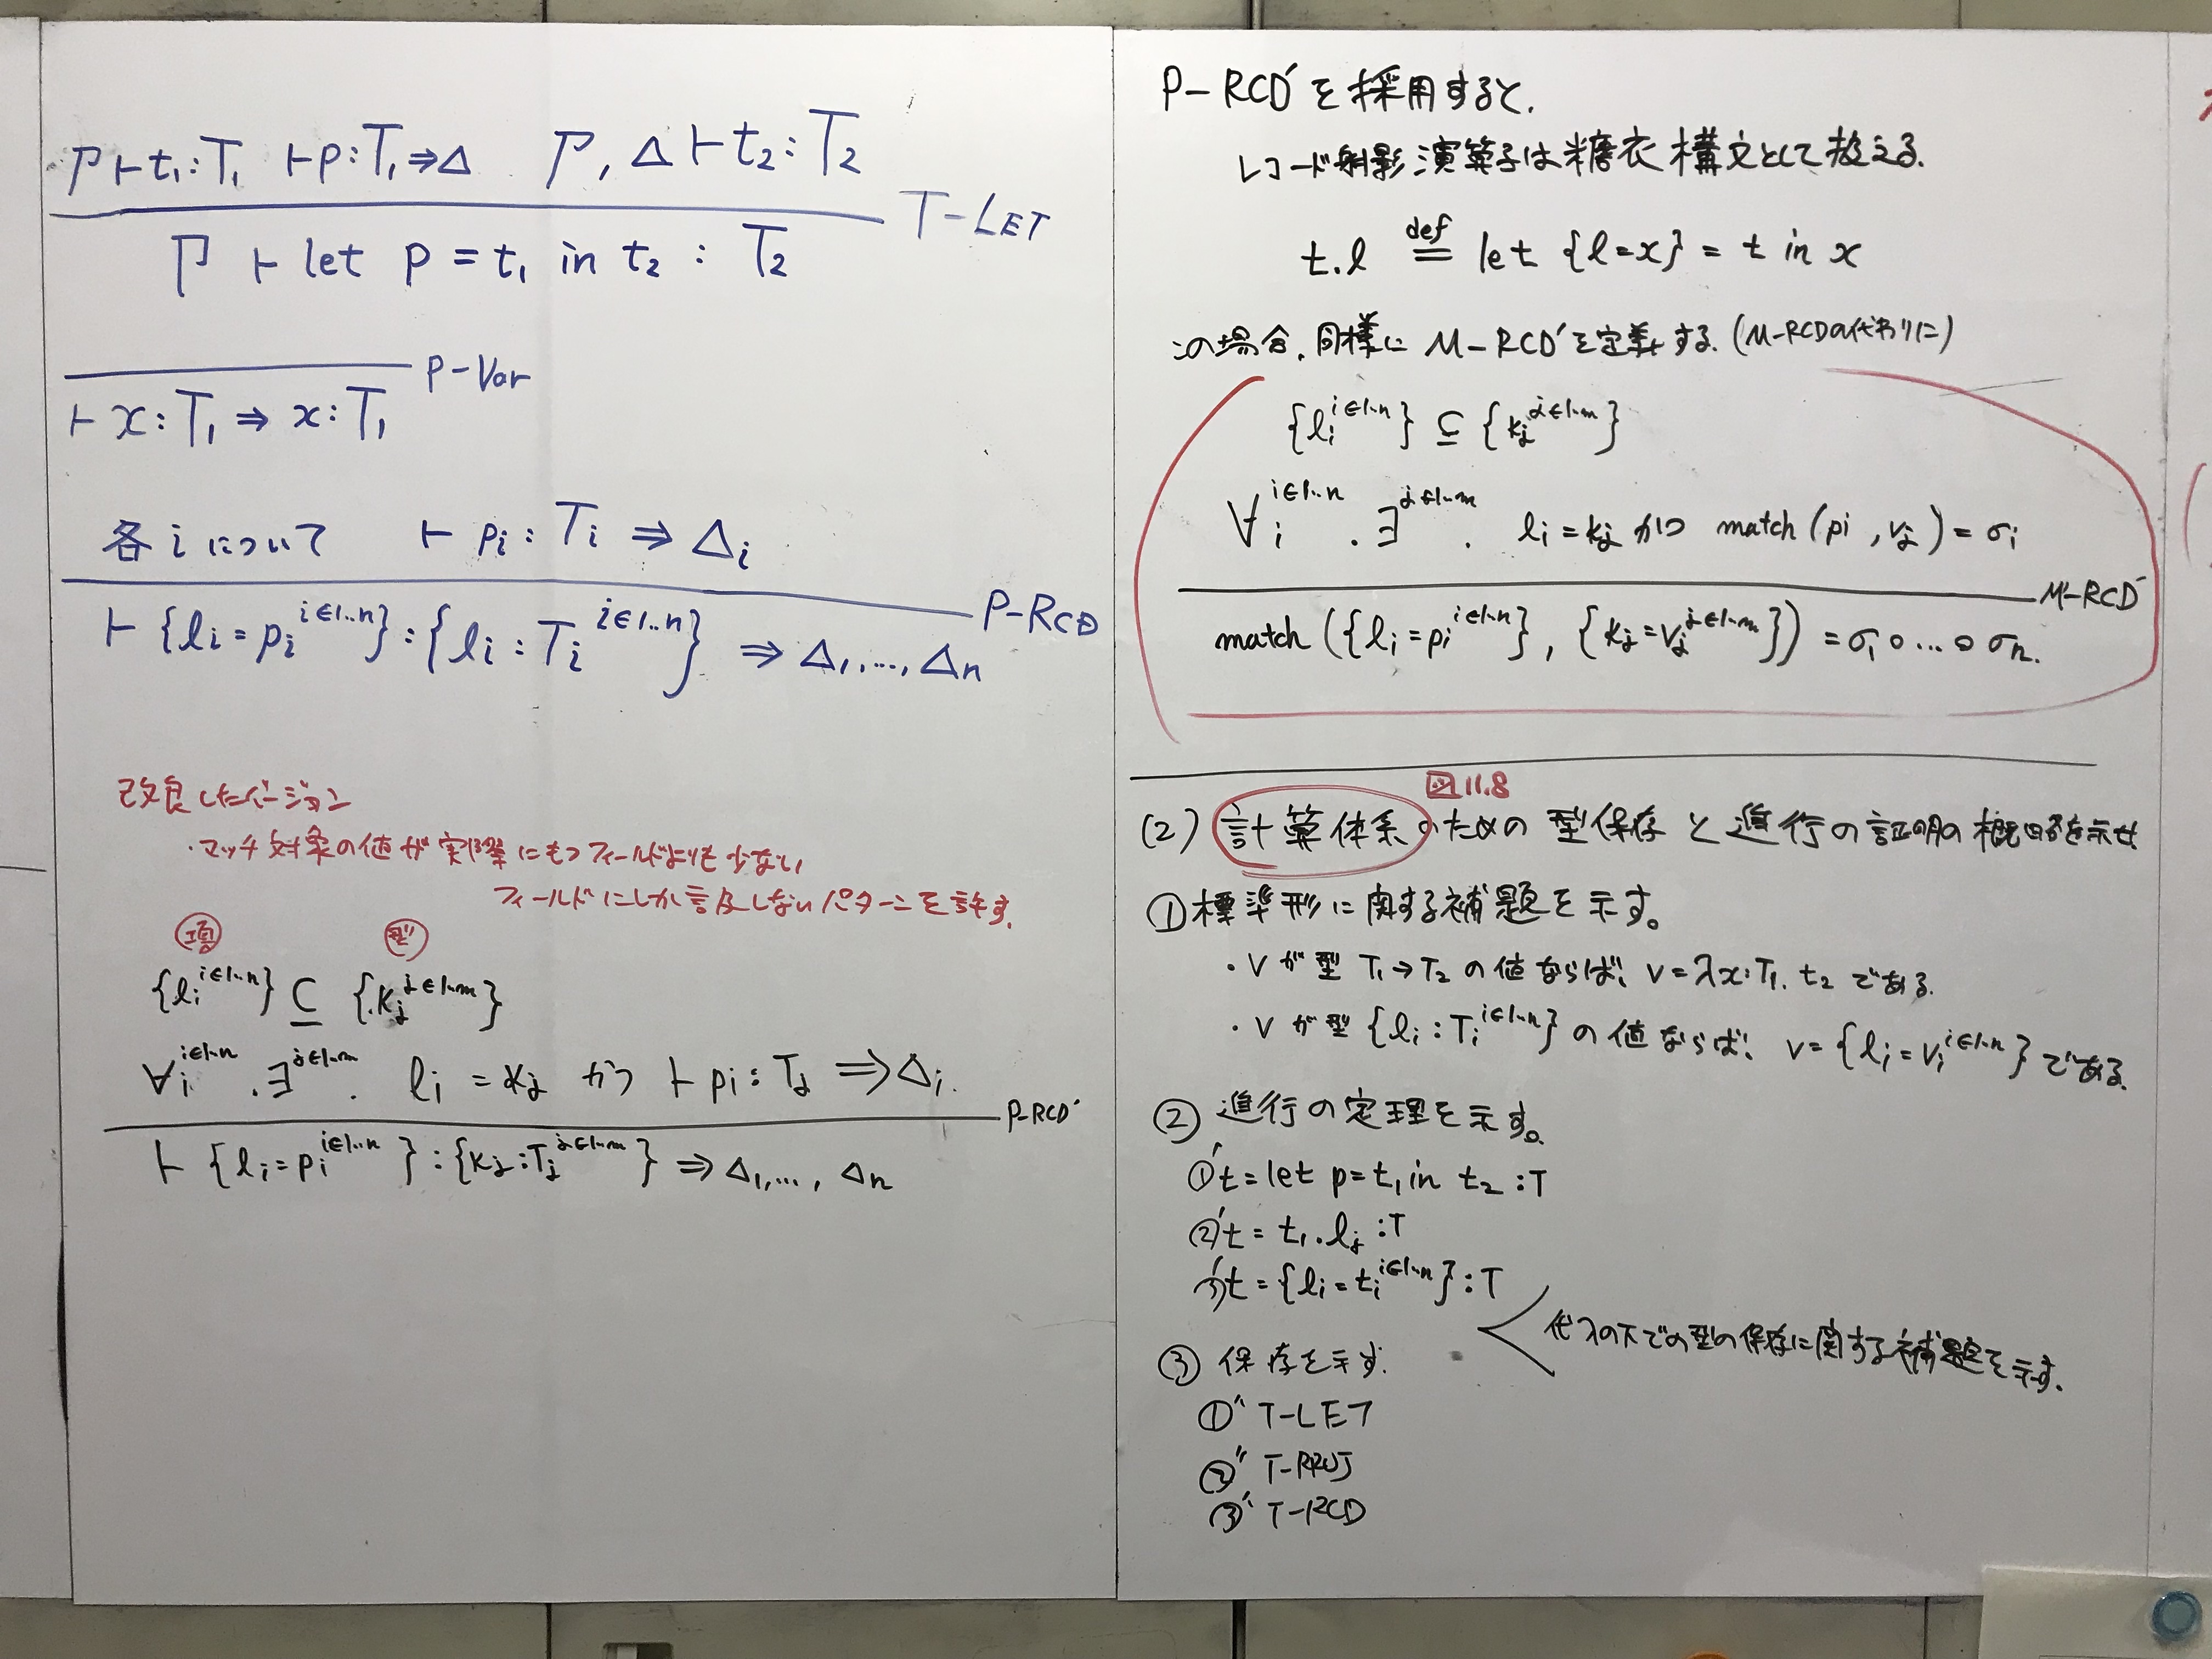 Γ ⊢ t₁ : T₁  ⊢ p : T₁ ⇒ Δ  Γ, Δ ⊢ t₂ : T₂
T-LET
Γ ⊢ let p = t₁ in t₂ : T₂
P-Var
⊢ x : T₁ ⇒ x : T₁
各iについて ⊢ pᵢ : Tᵢ ⇒ Δᵢ
P-RCD
⊢ {lᵢ = pᵢ^{i∈1..n}} : {lᵢ : Tᵢ^{i∈1..n}} ⇒ Δ₁, ..., Δn
改良したバージョン
・マッチ対象の値が実際にもつフィールドよりも少ない
フィールドにしか言及しないパターンを許す.
項 型
{lᵢ^{i∈1..n}} ⊆ {kⱼ^{j∈1..m}}
∀i^{i∈1..n}. ∃^{j∈1..m}. lᵢ = kⱼ かつ ⊢ pᵢ : Tⱼ ⇒ Δᵢ.
P-RCD'
⊢ {lᵢ = pᵢ^{i∈1..n}} : {kⱼ : Tⱼ^{j∈1..m}} ⇒ Δ₁, ..., Δn
P-RCD'を採用すると,
レコード射影演算子は糖衣構文として扱える.
t.l def= let {l=x} = t in x
この場合, 同様に M-RCD'を定義する. (M-RCDの代わりに)
{lᵢ^{i∈1..n}} ⊆ {kⱼ^{j∈1..m}}
∀i^{i∈1..n}. ∃^{j∈1..m}. lᵢ = kⱼ かつ match(pᵢ, vⱼ) = σᵢ
M-RCD'
match({lᵢ = pᵢ^{i∈1..n}}, {kⱼ = vⱼ^{j∈1..m}}) = σ₁∘...∘σn.
図11.8
(2) 計算体系のための型保存と進行の証明の概略を示せ
① 標準形に関する補題を示す。
・vが型 T₁→T₂ の値ならば, v = λx:T₁. t₂ である.
・vが型 {lᵢ : Tᵢ^{i∈1..n}} の値ならば, v = {lᵢ = vᵢ^{i∈1..n}} である.
② 進行の定理を示す。
①' t = let p = t₁ in t₂ : T
②' t = t₁.lⱼ : T
③' t = {lᵢ = tᵢ^{i∈1..n}} : T
代入の下での型の保存に関する補題を示す.
③ 保存を示す.
①'' T-LET
②'' T-PROJ
③'' T-RCD